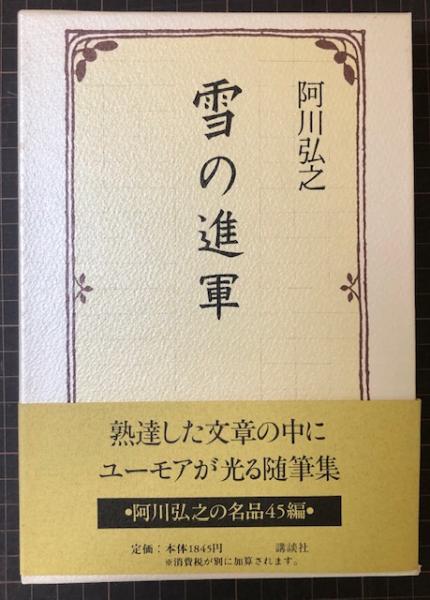 阿川弘之
雪の進軍
熟達した文章の中に
ユーモアが光る随筆集
•阿川弘之の名品45編•
定価：本体1845円 講談社
※消費税が別に加算されます。